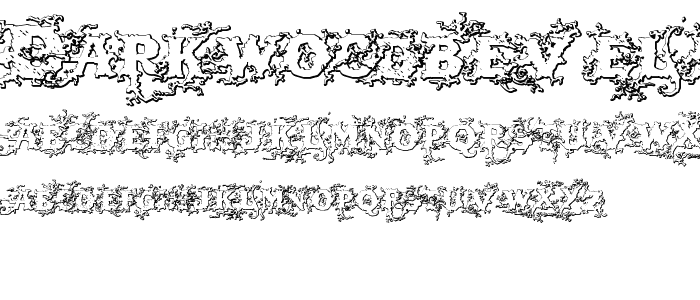 DARKWOODBEVEL
ABCDEFGHIJKLMNOPQRSTUVWX
ABCDEFGHIJKLMNOPQRSTUVWXYZ